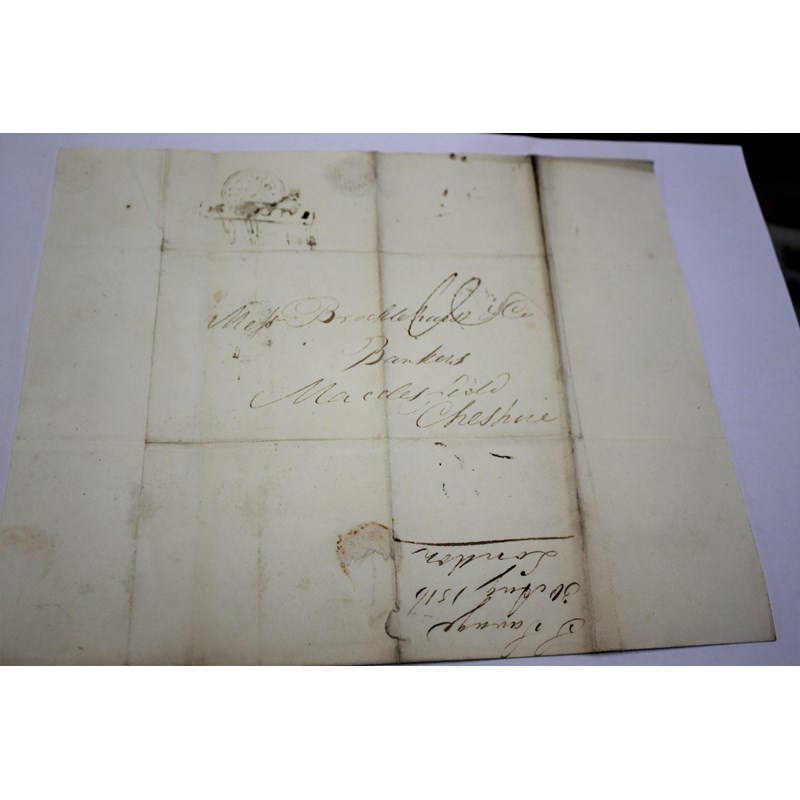 Messrs Brocklehurst & Co
Bankers
Macclesfield
Cheshire
London
30 Aug 1816
Savage